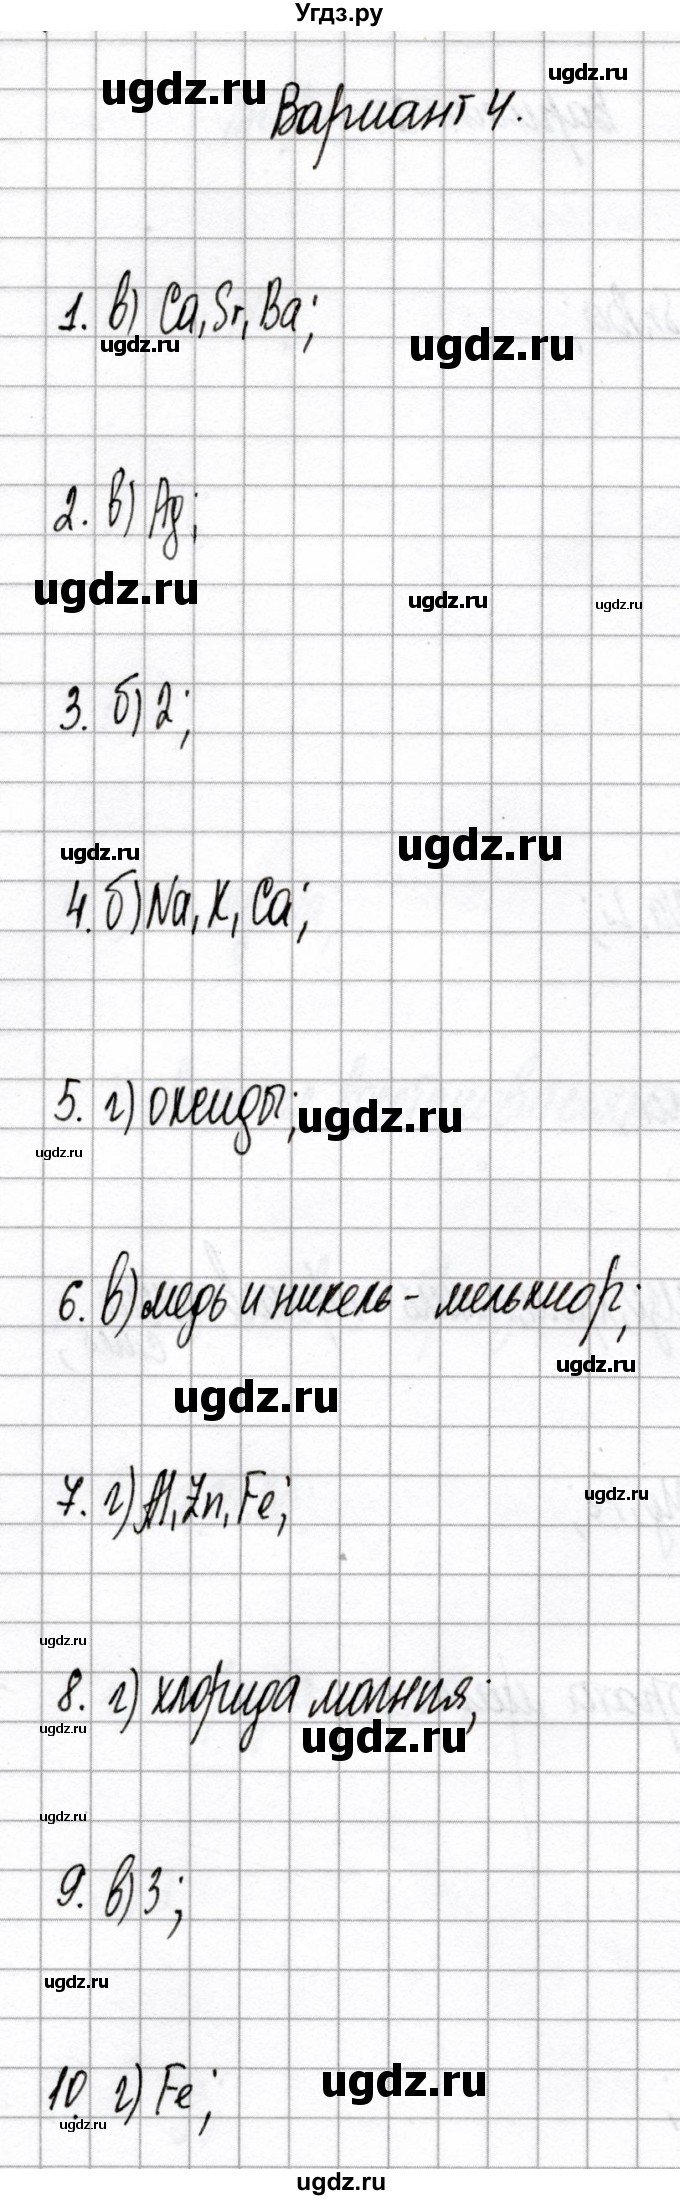 Угдз.ру
ugdz.ru
ugdz.ru
Вариант 4.
1. в) Ca, Sr, Ba;
ugdz.ru
ugdz.ru
2. в) Ag;
ugdz.ru
ugdz.ru
ugdz.ru
3. б) 2;
ugdz.ru
ugdz.ru
4. б) Na, K, Ca;
5. г) оксиды;
ugdz.ru
ugdz.ru
6. в) медь и никель - мельхиор;
ugdz.ru
ugdz.ru
7. г) Al, Zn, Fe;
ugdz.ru
ugdz.ru
8. г) хлорида магния;
ugdz.ru
ugdz.ru
ugdz.ru
9. в) 3;
ugdz.ru
ugdz.ru
10. г) Fe;
ugdz.ru
ugdz.ru